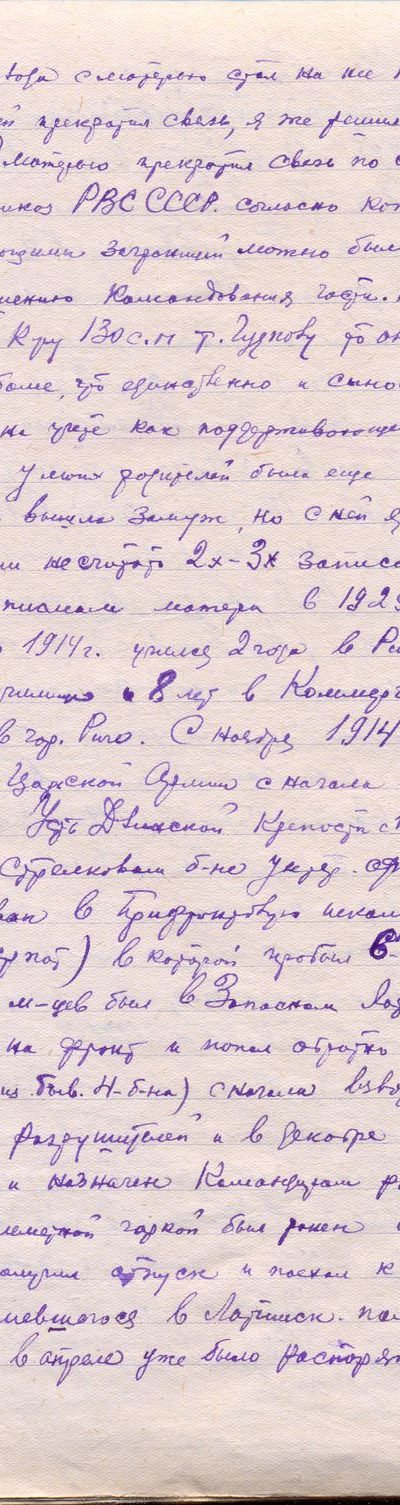 года с матерью стал на не
прекратил связь, я же решил
матерью прекратил связь по
РВС СССР. согласно
заграницей можно был
Командования части.
К-ру 130 с.п т. Гуднову то он
более, что единственно и сыно
на учете как поддерживающе
У моих родителей была еще
вышла замуж, но с ней я
не считать 2х-3х записо
письмам матери в 192
1914 г. учился 2 года в Ри
8 лет в Коммерч
в гор. Риге. С ноября 1914
Царской Армии с начала
Усть Двинской Крепости
Стрелковом б-не унтер. оф
в Прифронтовую школ
) в которой пробыл 6-
м-цев был в Запасном Лат
на фронт и попал обратно
из быв. 4-б-на) сначала взво
разрушителей и в декабре
и назначен Командиром р
горкой был ранен
получил отпуск и поехал к
имевшегося в Латышск. по
в апреле уже было распоря